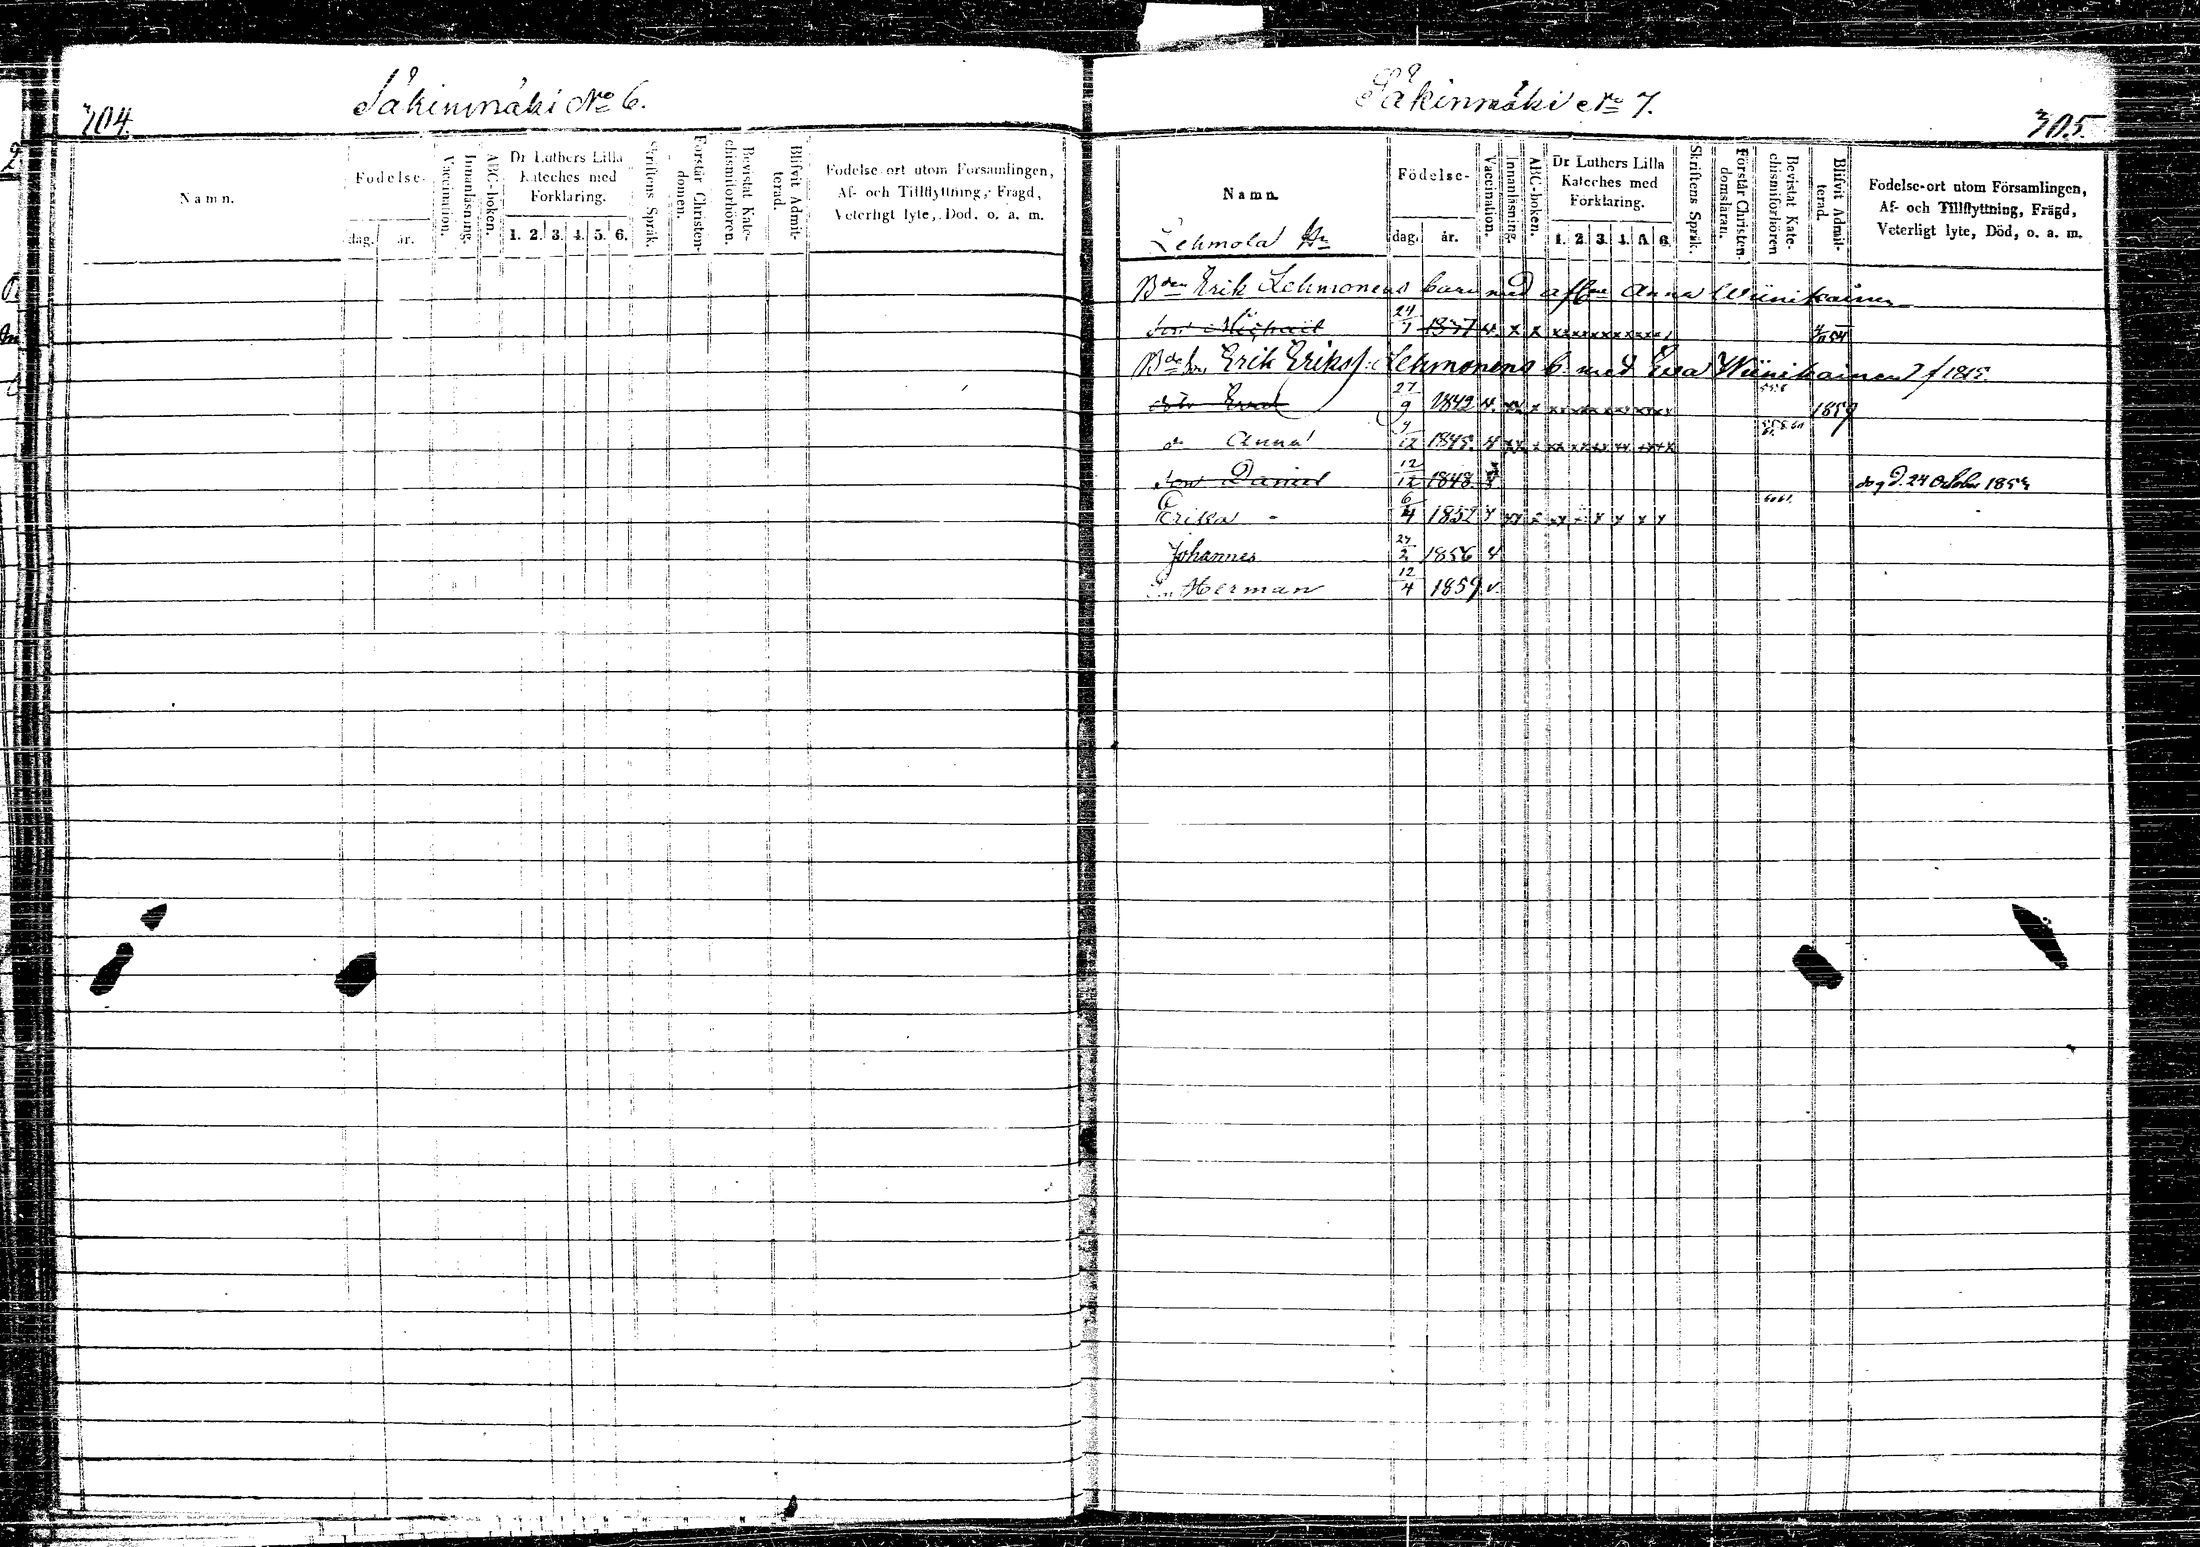 304.
Såkinmäki No 6.
Namn.
Födelse-
dag. år.
Vaccination.
Innanläsning.
ABC-boken.
Dr Luthers Lilla
Kateches med
Förklaring.
1. 2. 3. 4. 5. 6.
Skriftens Språk.
Förstår Christen-
domen.
Bevistat Kate-
chismiförhören.
Blifvit Admit-
terad.
Födelse-ort utom Församlingen,
Af- och Tillflyttning, Frägd,
Veterligt lyte, Död, o. a. m.
Såkinmäki No 7.
305.
Namn.
Födelse-
dag. år.
Vaccination.
Innanläsning.
ABC-boken.
Dr Luthers Lilla
Kateches med
Förklaring.
1. 2. 3. 4. 5. 6.
Skriftens Språk.
Förstår Christen-
domsläran.
Bevistat Kate-
chismiförhören
Blifvit Admit-
terad.
Födelse-ort utom Församlingen,
Af- och Tillflyttning, Frägd,
Veterligt lyte, Död, o. a. m.
Lehmola
Bden Erik Lehmonens barn med aflne Anna Wiinikainen
Son Michael 24/7 1837 v. x x xx xx xx xx xx
Erik Eriks Lehmonens b. med Eva Wiinikainen f 1815.
dotr Eva 27/9 1842 v. xx x xx xx xx xx xx xx 1859
do Anna 1845. v xx x xx xx xx xx xx xx
Son Daniel 12/12 1848. v dog d. 24 October
Erika 6/4 1852 v xx x xx x x x x x 60 61.
Johannes 24/2 1856 v
Herman 12/4 1859 v.